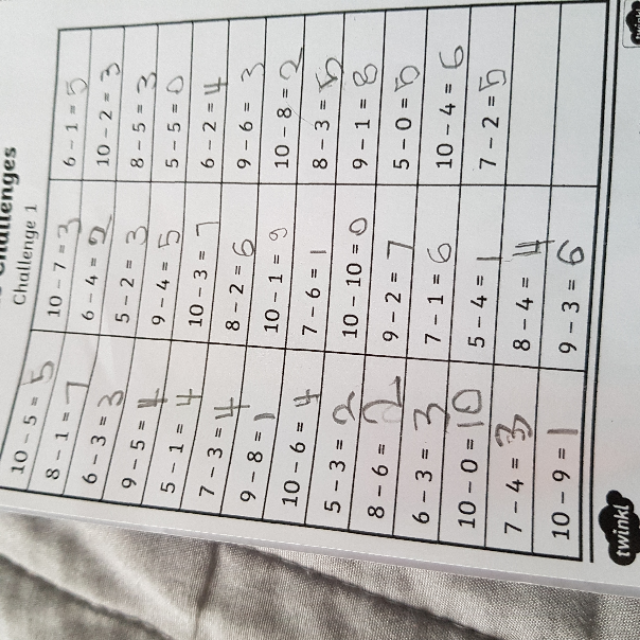 Challenges
Challenge 1
10 – 5 = 5
8 – 1 = 7
6 – 3 = 3
9 – 5 = 4
5 – 1 = 4
7 – 3 = 4
9 – 8 = 1
10 – 6 = 4
5 – 3 = 2
8 – 6 = 2
6 – 3 = 3
10 – 0 = 10
7 – 4 = 3
10 – 9 = 1
10 – 7 = 3
6 – 4 = 2
5 – 2 = 3
9 – 4 = 5
10 – 3 = 7
8 – 2 = 6
10 – 1 = 9
7 – 6 = 1
10 – 10 = 0
9 – 2 = 7
7 – 1 = 6
5 – 4 = 1
8 – 4 = 4
9 – 3 = 6
6 – 1 = 5
10 – 2 = 3
8 – 5 = 3
5 – 5 = 0
6 – 2 = 4
9 – 6 = 3
10 – 8 = 2
8 – 3 = 5
9 – 1 = 8
5 – 0 = 5
10 – 4 = 6
7 – 2 = 5
twinkl